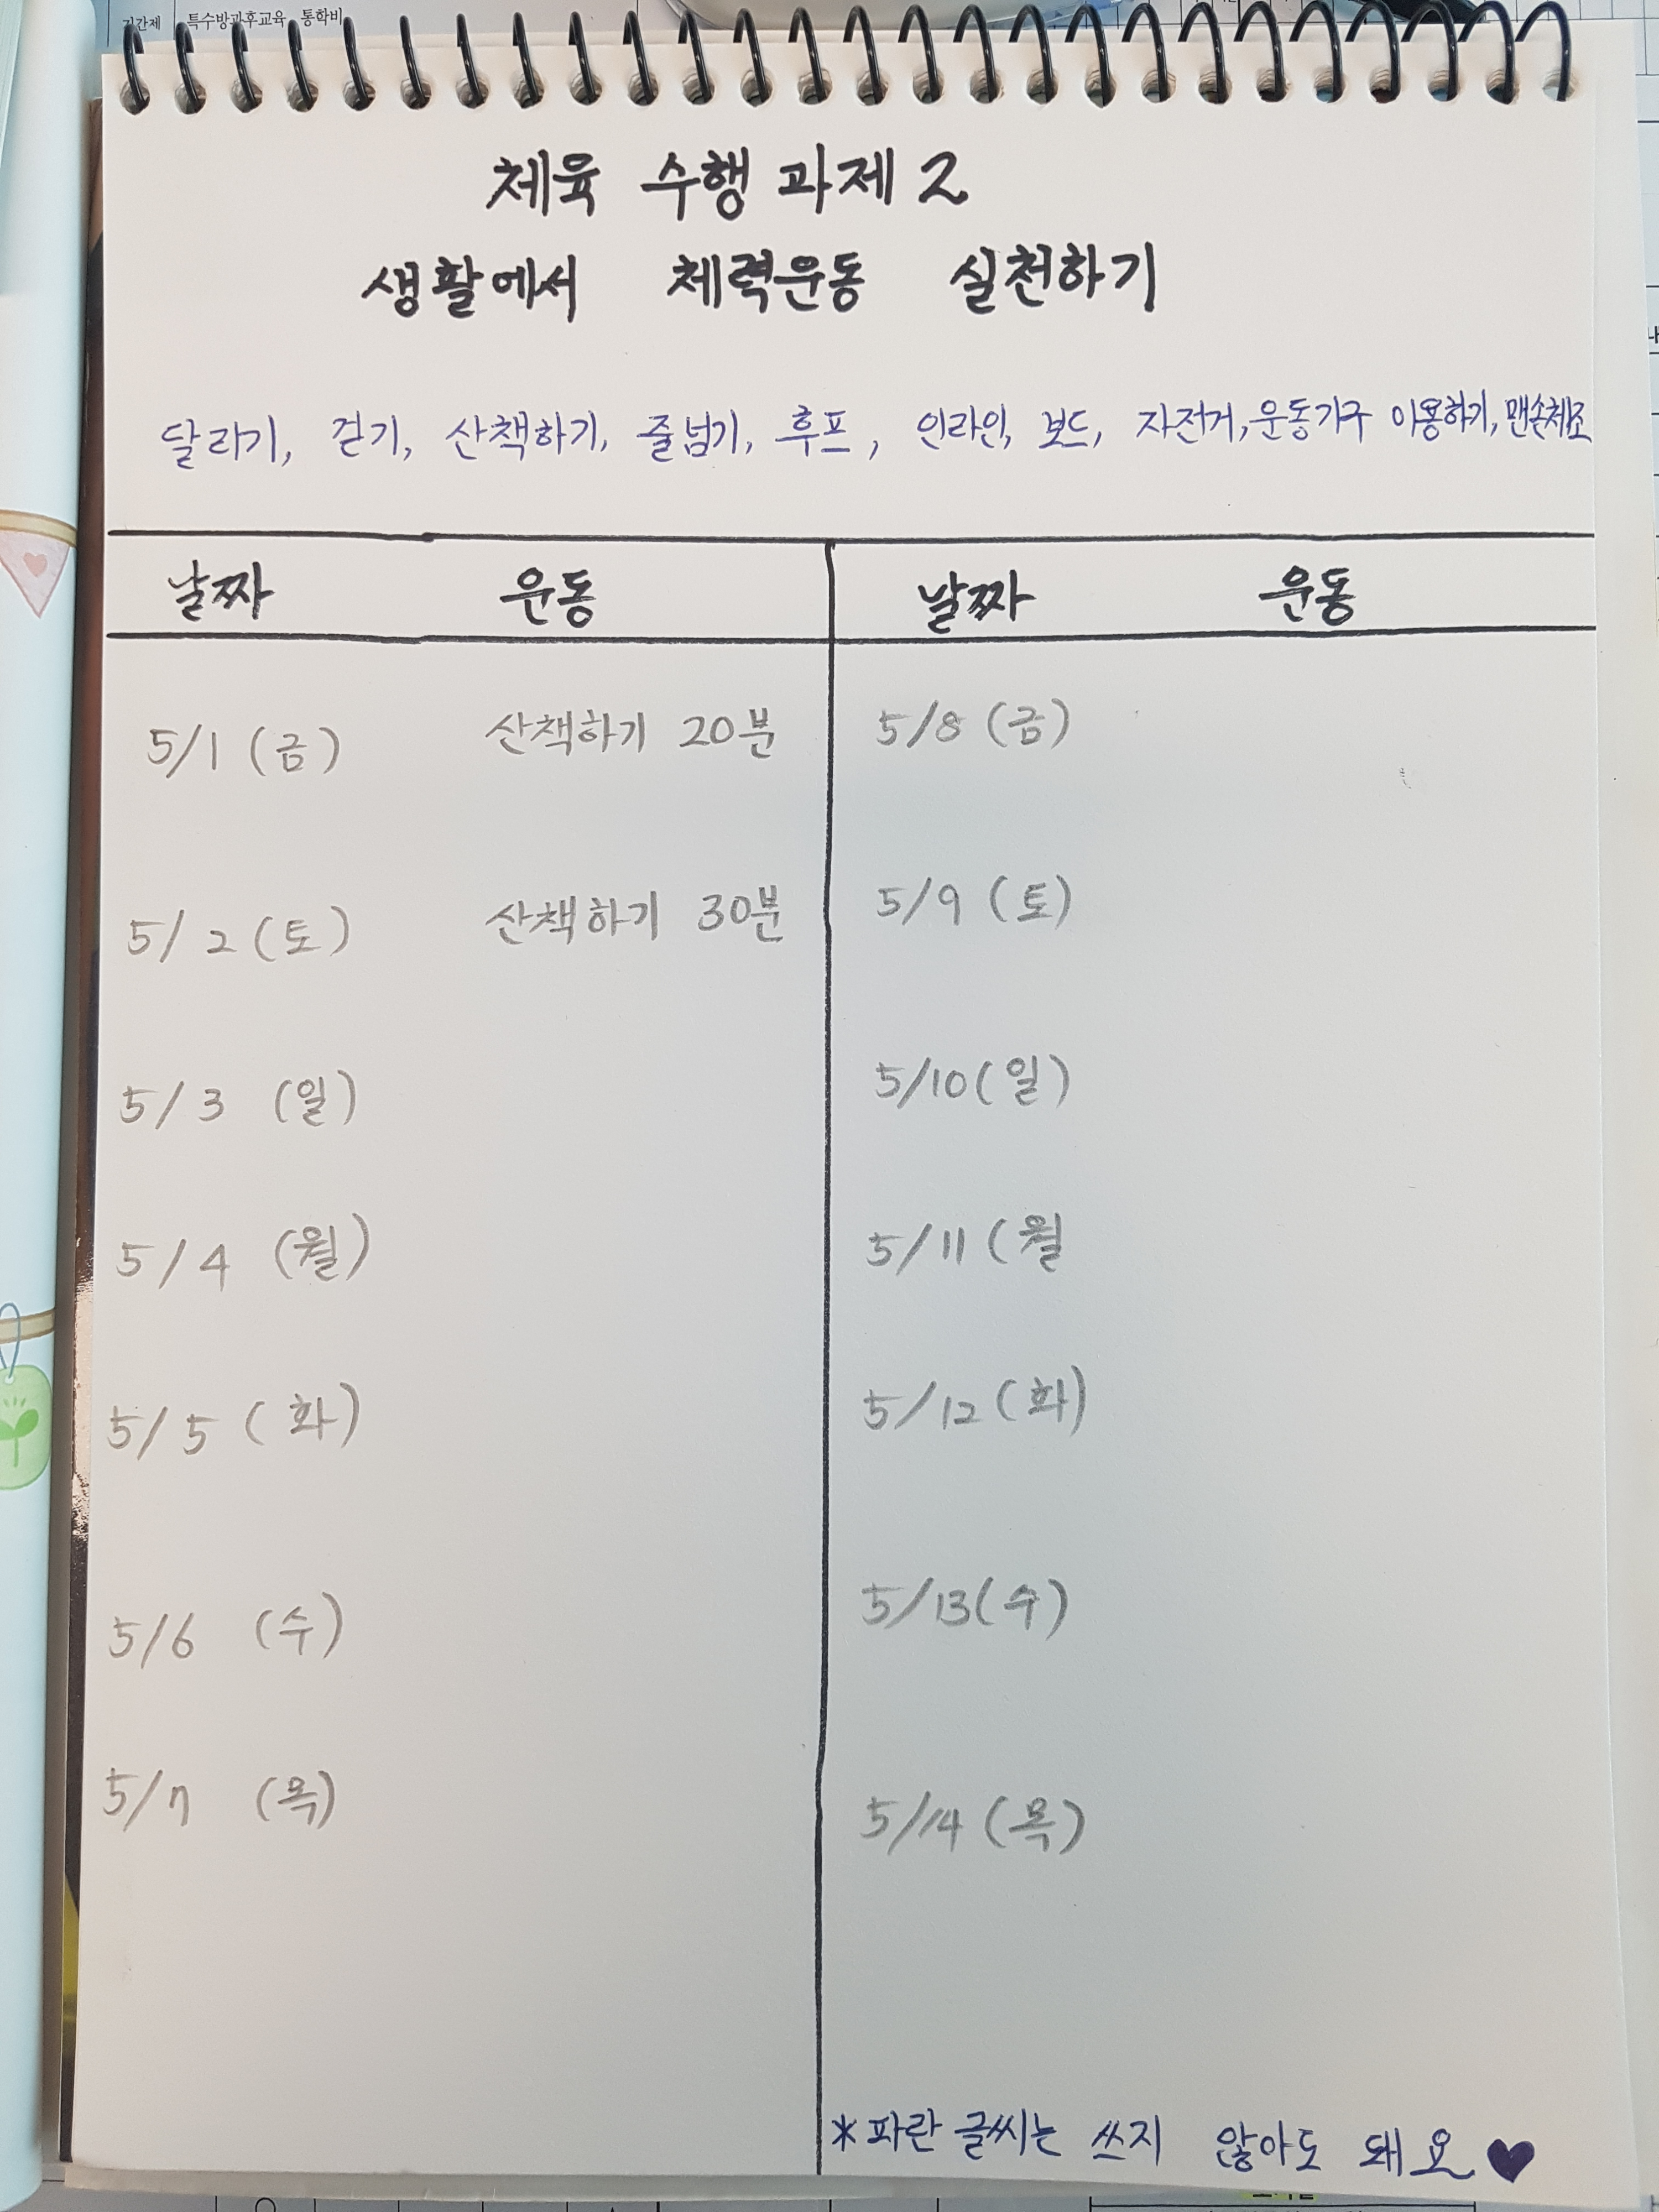 기간제 특수방과후교육 통학비
체육 수행 과제 2
생활에서 체력운동 실천하기
달리기, 걷기, 산책하기, 줄넘기, 후프, 인라인, 보드, 자전거, 운동기구 이용하기, 맨손체조
날짜 운동 날짜 운동
5/1 (금) 산책하기 20분 5/8 (금)
5/2 (토) 산책하기 30분 5/9 (토)
5/3 (일) 5/10 (일)
5/4 (월) 5/11 (월
5/5 (화) 5/12 (화)
5/6 (수) 5/13 (수)
5/7 (목) 5/14 (목)
*파란 글씨는 쓰지 않아도 돼요♥